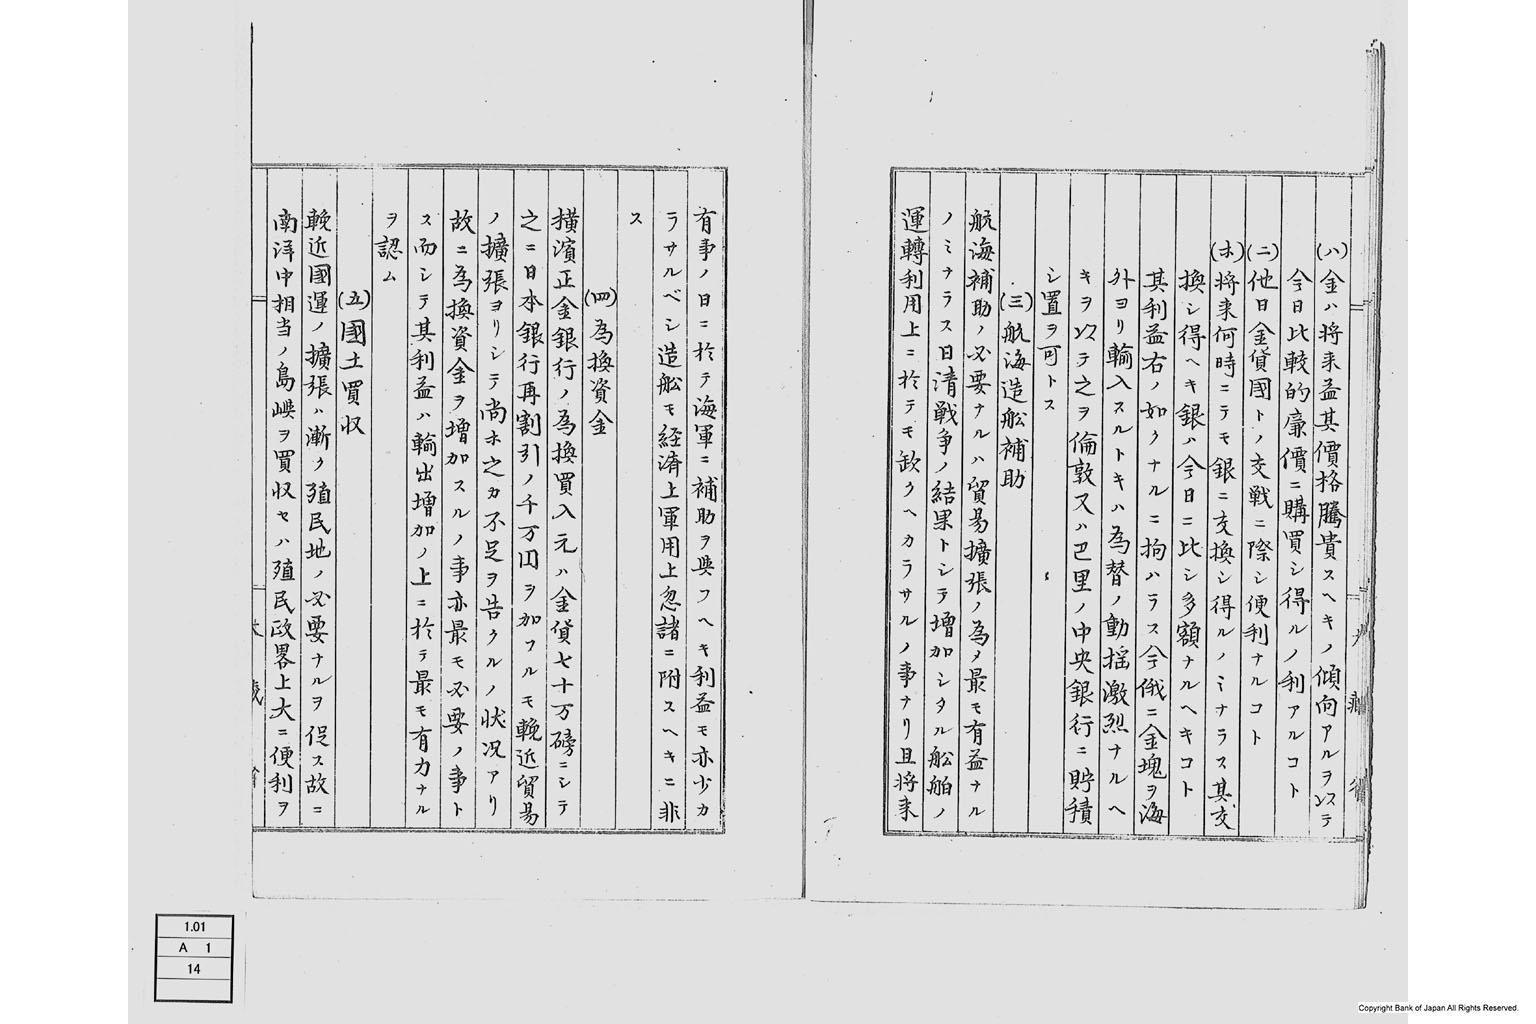 (ハ)金ハ将来益其價格騰貴スヘキノ傾向アルヲ以テ
今日比較的廉價ニ購買シ得ルノ利アルコト
(ニ)他日金貨國トノ交戦ニ際シ便利ナルコト
(ホ)将来何時ニテモ銀ニ交換シ得ルノミナラス其交
換シ得ヘキ銀ハ今日ニ比シ多額ナルヘキコト
其利益右ノ如クナルニ拘ハラス今俄ニ金塊ヲ海
外ヨリ輸入スルトキハ為替ノ動揺激烈ナルヘ
キヲ以テ之ヲ倫敦又ハ巴里ノ中央銀行ニ貯積
シ置ヲ可トス
(三)航海造舩補助
航海補助ノ必要ナルハ貿易擴張ノ為メ最モ有益ナル
ノミナラス日清戦争ノ結果トシテ増加シタル舩舶ノ
運轉利用上ニ於テモ欽クヘカラサルノ事ナリ且将来
有事ノ日ニ於テ海軍ニ補助ヲ與フヘキ利益モ亦少カ
ラサルベシ造舩モ経済上軍用上忽諸ニ附スヘキニ非
ス
(四)為換資金
横濱正金銀行ノ為換買入元ハ金貨七十万磅ニシテ
之ニ日本銀行再割引ノ千万円ヲ加フルモ輓近貿易
ノ擴張ヨリシテ尚ホ之カ不足ヲ告クルノ状況アリ
故ニ為換資金ヲ増加スルノ事亦最モ必要ノ事ト
ス而シテ其利益ハ輸出増加ノ上ニ於テ最モ有力ナル
ヲ認ム
(五)國土買収
輓近國運ノ擴張ハ漸ク殖民地ノ必要ナルヲ促ス故ニ
南洋中相当ノ島嶼ヲ買収セハ殖民政畧上大ニ便利ヲ
1.01
A 1
14
Copyright Bank of Japan All Rights Reserved.